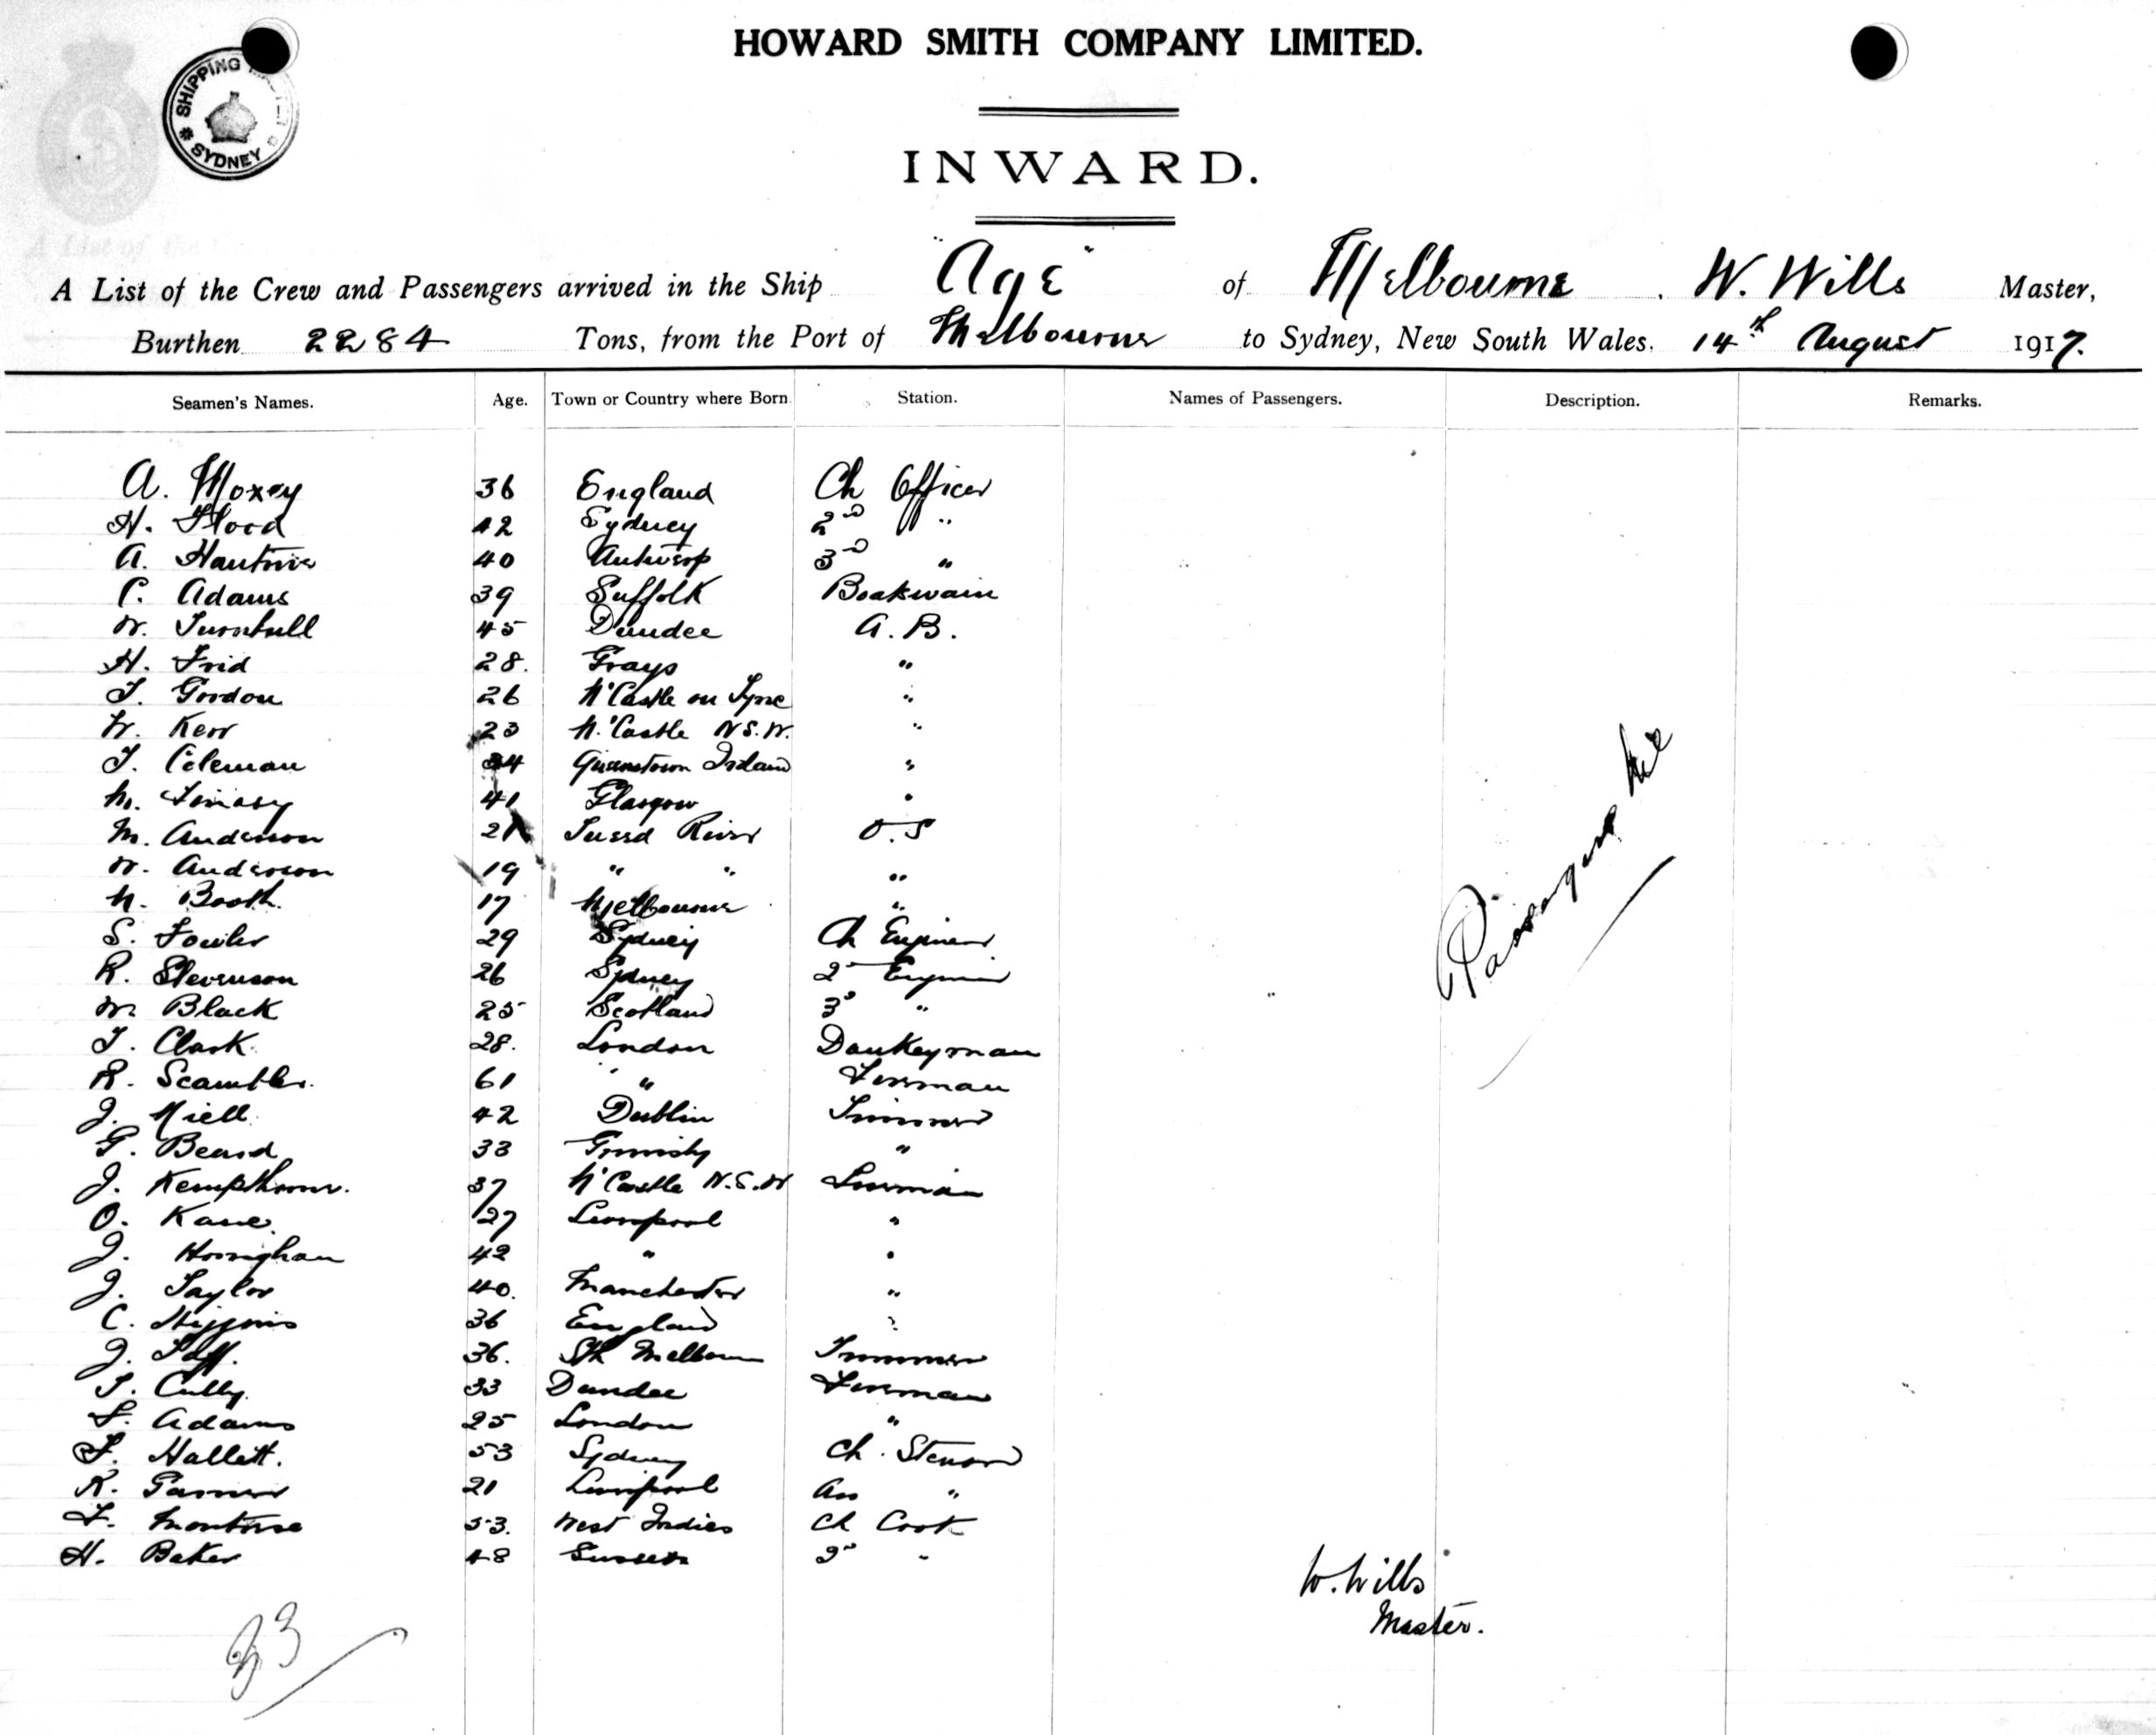 HOWARD SMITH COMPANY LIMITED.
SHIPPING
SYDNEY
INWARD.
A List of the Crew and Passengers arrived in the Ship "Age" of Melbourne, W. Wills Master,
Burthen 2284 Tons, from the Port of Melbourne to Sydney, New South Wales, 14th August 1917.
Seamen's Names. Age. Town or Country where Born Station. Names of Passengers. Description. Remarks.
A. Moxey 36 England Ch Officer
H. Flood 42 Sydney 2nd "
A. 40 Antwerp 3rd "
C. Adams 39 Suffolk Boatswain
W. Turnbull 45 Dundee A.B.
H. Frid 28. Grays "
T. Gordon 26 N'Castle on Tyne "
W. Kerr 23 N'Castle N.S.W. "
T. Coleman 34 Queenstown Ireland "
41 Glasgow "
M. Anderson 21 Tweed River O.S
W. Anderson 19 " " "
N. Booth. 17 Melbourne "
S. Fowler 29 Sydney Ch Engineer
R. Stevenson 26 Sydney 2nd Engineer
W. Black 25 Scotland 3rd "
T. Clark. 28. London Donkeyman
R. Scambler. 61 " Fireman
J. Niell. 42 Dublin Trimmer
G. Beard 33 Grimsby "
J. Kempthorne. 37 N'Castle N.S.W Fireman
O. Kane. 27 Liverpool "
J. 42 " "
J. Taylor 40. Manchester "
C. Higgins 36 England "
J. 36. Sth Melbourne Trimmer
T. Cully. 33 Dundee Fireman
F. Adams 25 London "
F. Hallett. 53 Sydney Ch. Steward
R. Garner 21 Liverpool Ass "
F. Montrose 53. West Indies Ch Cook
H. Baker 48 Sussex 2nd "
Passengers Nil
W. Wills
Master.
33